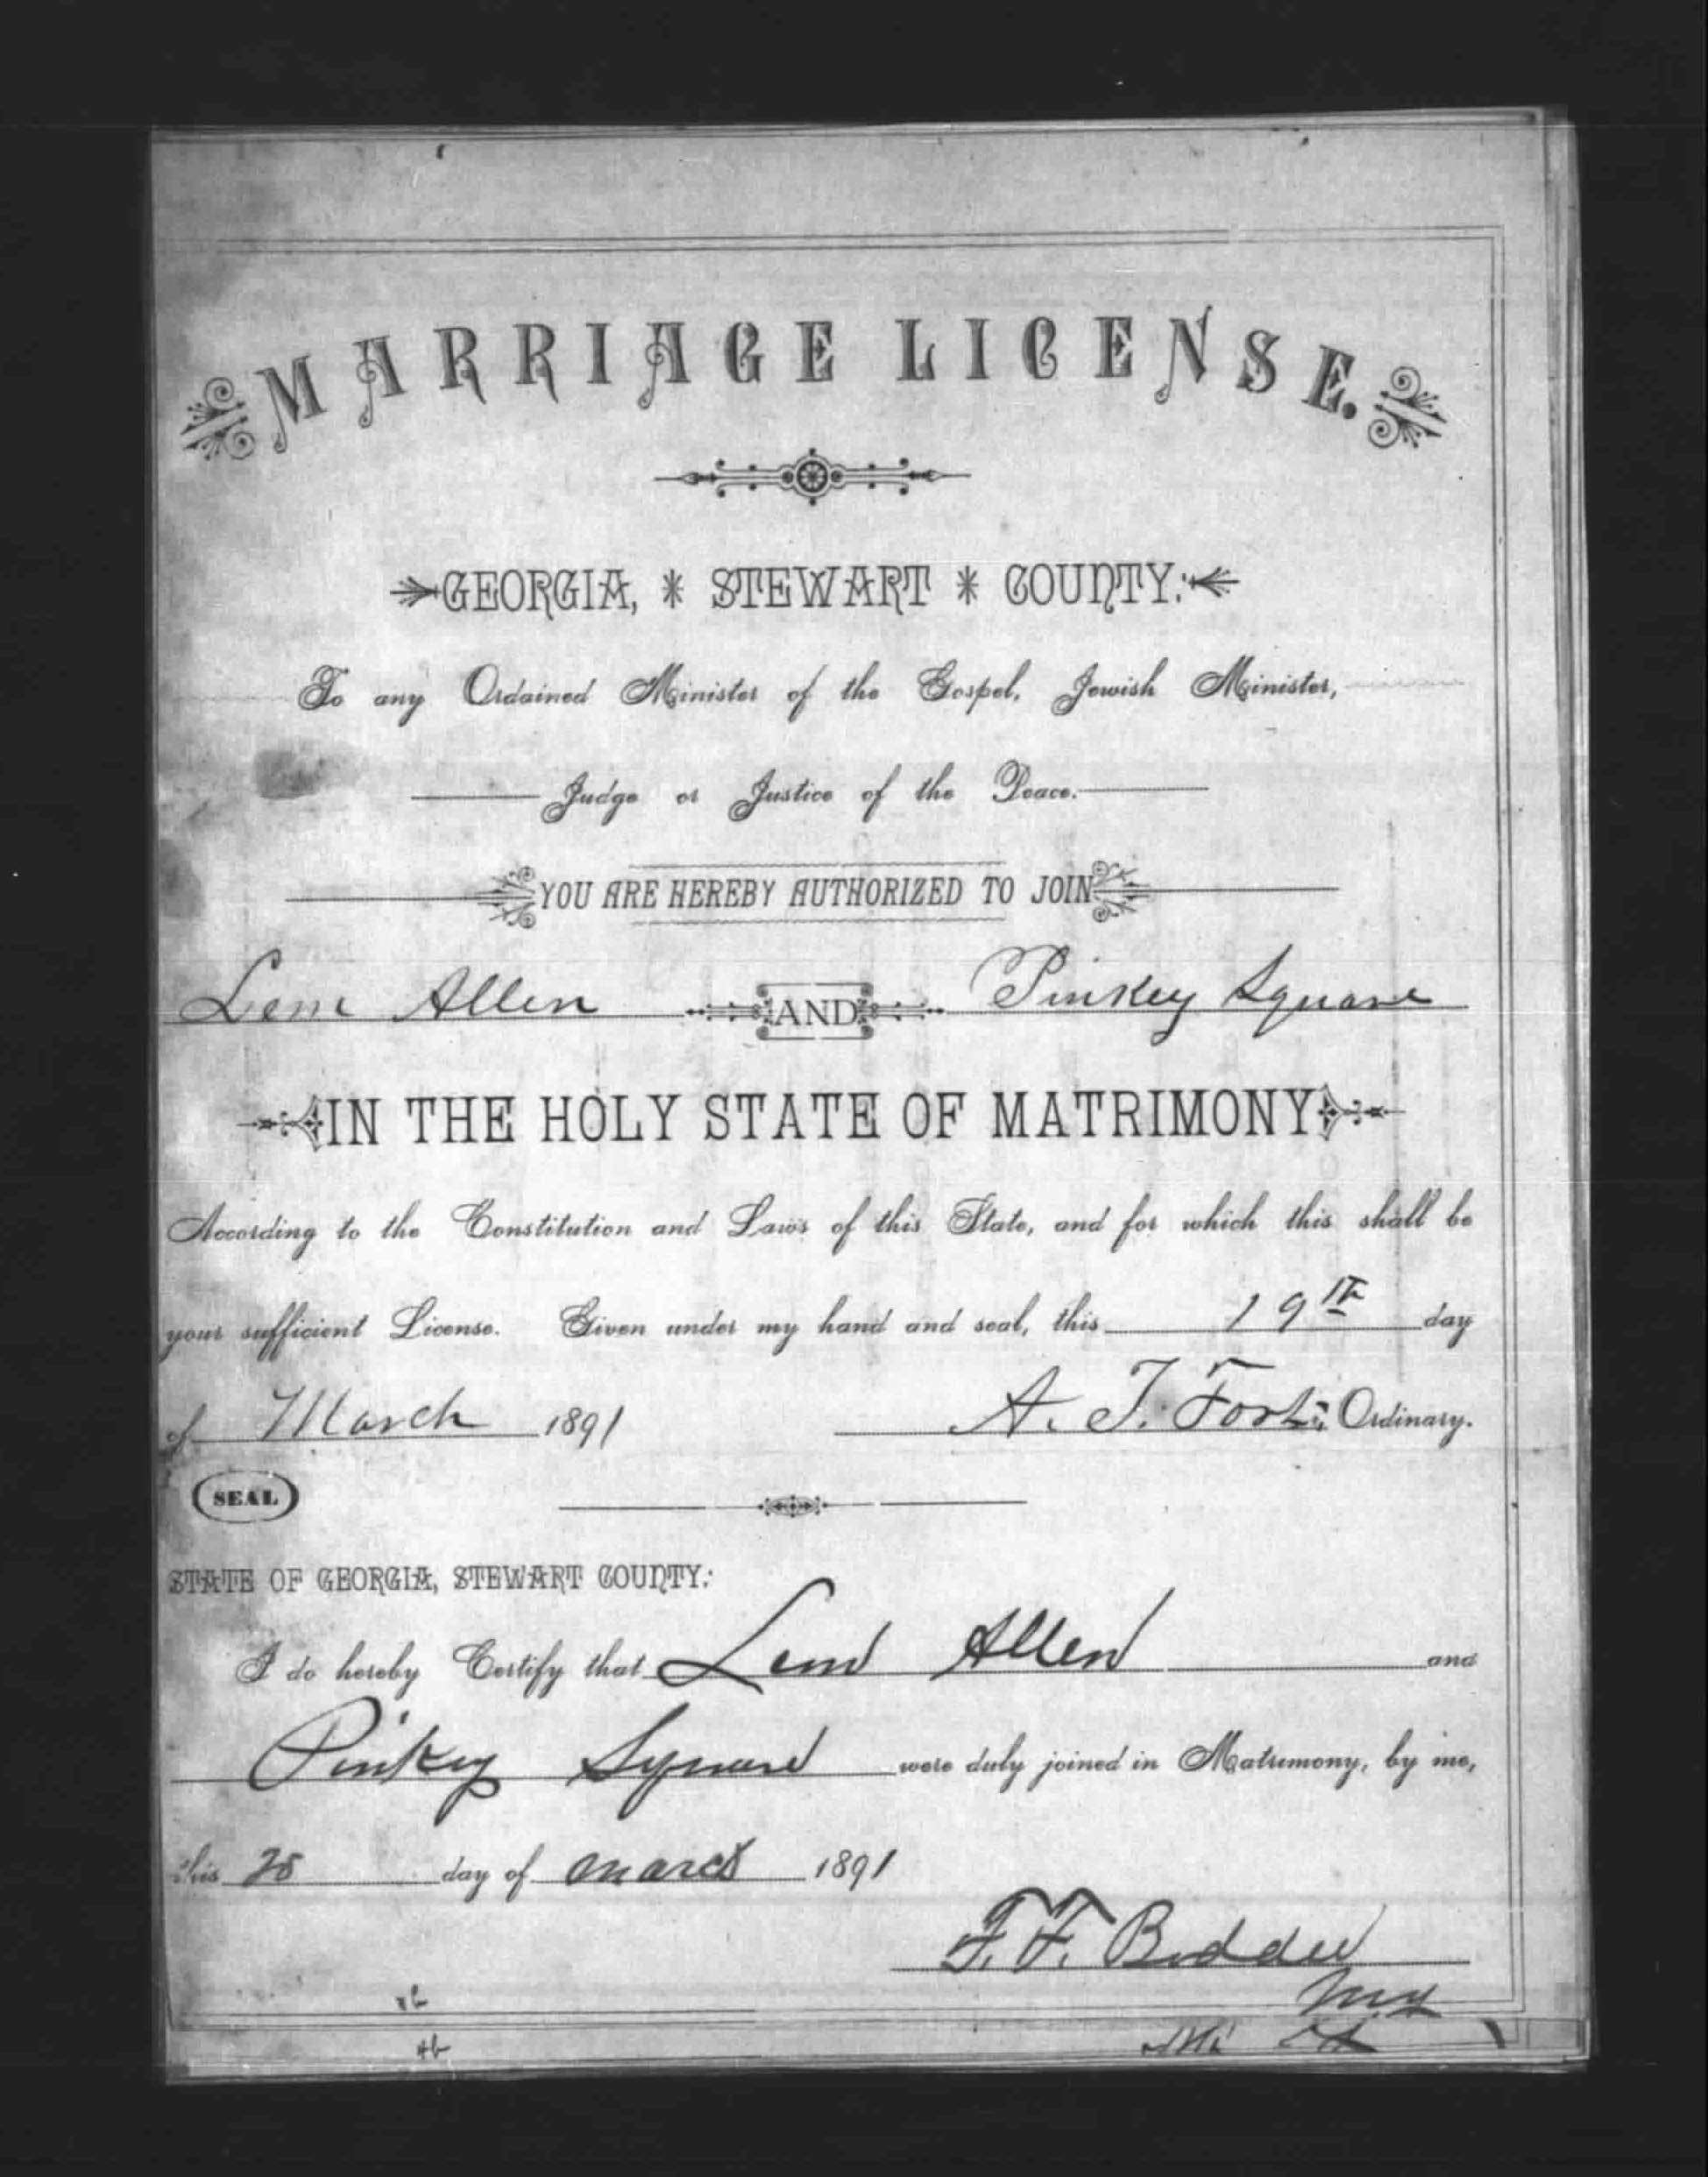 MARRIAGE LICENSE.
GEORGIA, * STEWART * COUNTY:
To any Ordained Minister of the Gospel, Jewish Minister,
Judge or Justice of the Peace.
YOU ARE HEREBY AUTHORIZED TO JOIN
Lem Allen AND Pinkey Square
IN THE HOLY STATE OF MATRIMONY
According to the Constitution and Laws of this State, and for which this shall be
your sufficient License. Given under my hand and seal, this 19th day
of March 1891 A. T. Fort, Ordinary.
SEAL
STATE OF GEORGIA, STEWART COUNTY:
I do hereby Certify that Lem Allen and
Pinkey Square were duly joined in Matrimony, by me,
this day of March 1891
F. F. Boddie